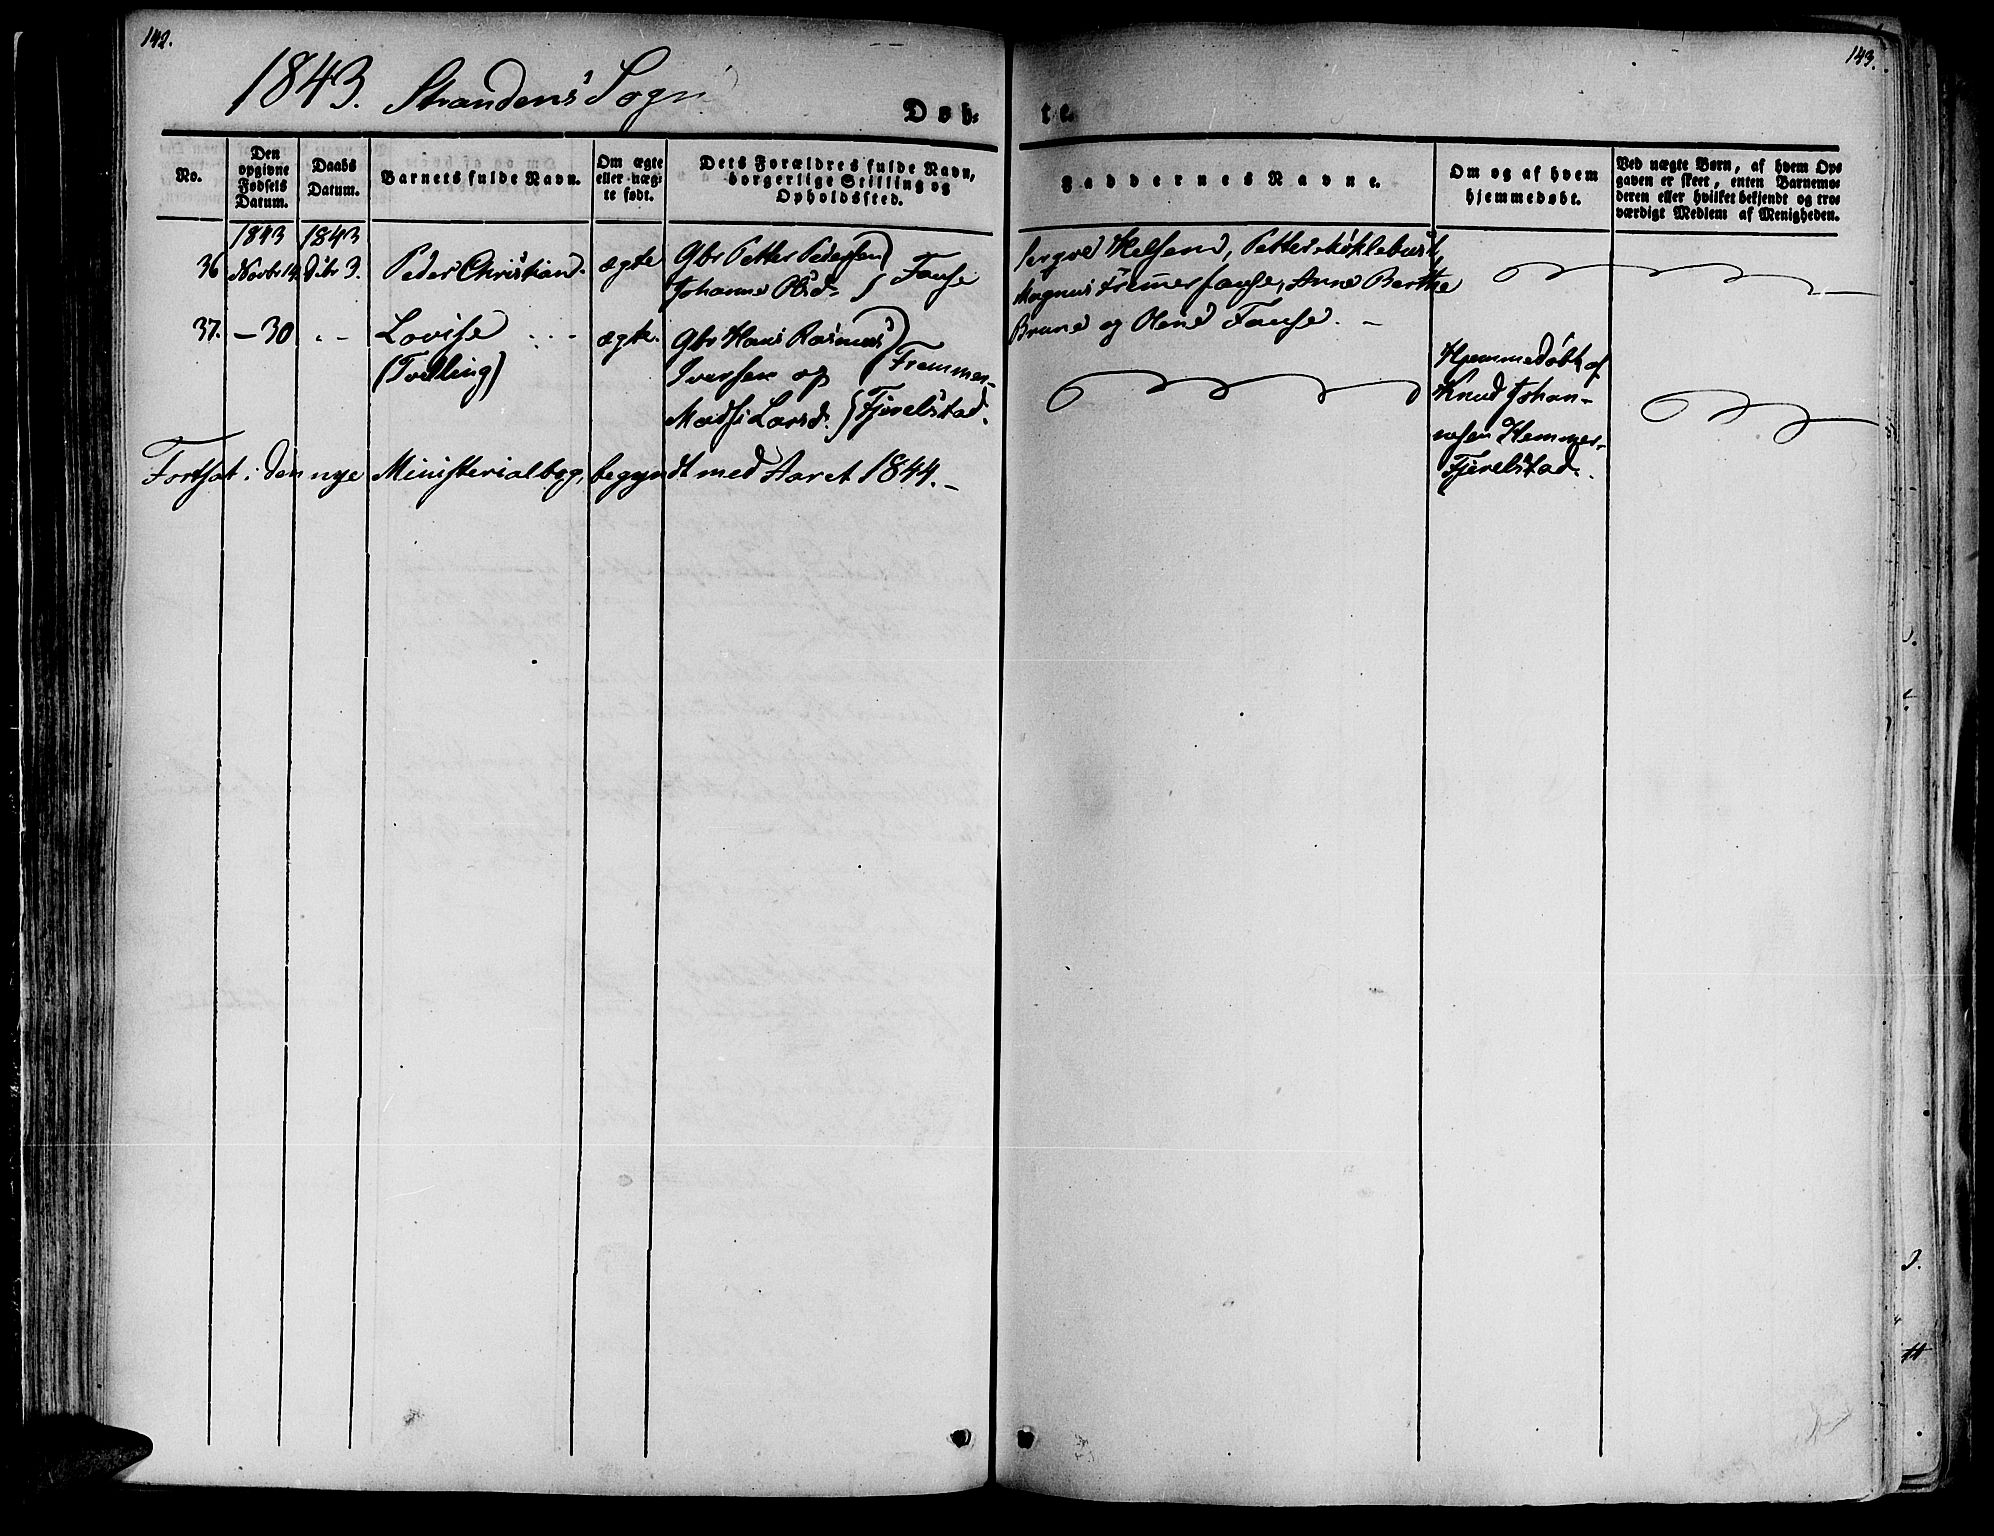 142.
143.
1843. Strandens Sogn
Døb-
te.
No.
Den
opgivne
Fødsels
Datum.
Daabs
Datum.
Barnets fulde Navn.
Om ægte
eller uæg-
te født.
Dets Forældres fulde Navn,
borgerlige Stilling og
Opholdssted.
Faddernes Navne.
Om og af hvem
hjemmedøbt.
Ved uægte Børn, af hvem Op-
gaven er skeet, enten Barnemo-
deren eller hvilket bekjendt og tro-
værdigt Medlem af Menigheden.
1843 1843
36 Novbr 14. Dcbr 3. Peder Christian. ægte Gbr Petter Pedersen
Johanne Olsd. Fause
Nielsen, Petter Røklebust,
Magnus Fremer fause, Anne Berthe
Brune og Olene Fause. -
37. - 30 " - Lovise ægte. Gbr Hans Rasmus
(Tvilling) Iversen og Fremmer-
Madsi Larsd. Fjørelstad.
Hjemmedøbt af
Knud Johan-
nesen Hemmer-
Fjørelstad.
Fortsat i den nye Ministerialbog, begyndt med Aaret 1844. -